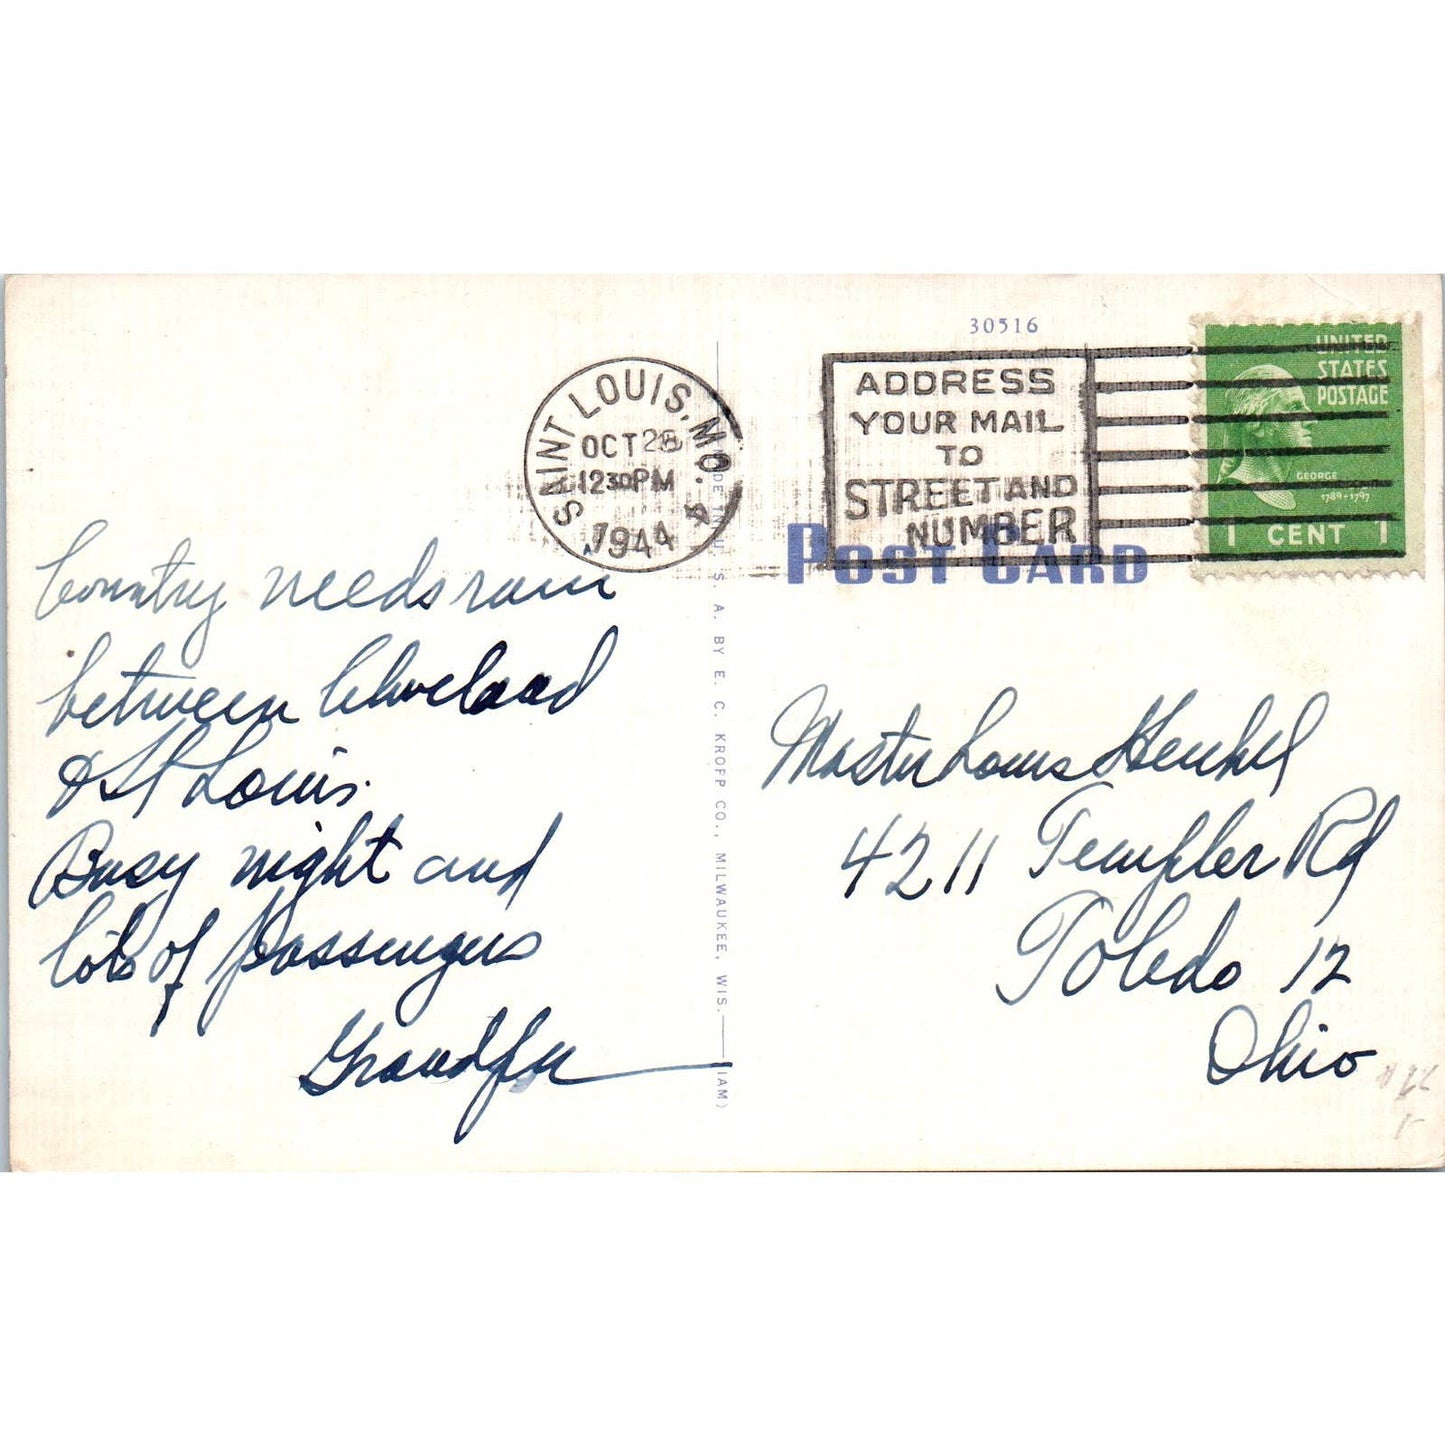 30516
SAINT LOUIS, MO. 4
OCT 28
12 30 PM
1944
ADDRESS
YOUR MAIL
TO
STREET AND
NUMBER
UNITED
STATES
POSTAGE
GEORGE
1789-1797
1 CENT 1
POST CARD
Country needs rain
between Cleveland
& St Louis.
Busy night and
lots of passengers
MADE IN U. S. A. BY E. C. KROPP CO., MILWAUKEE, WIS.
Master Louis Henkel
4211 Templer Rd
Toledo 12
Ohio